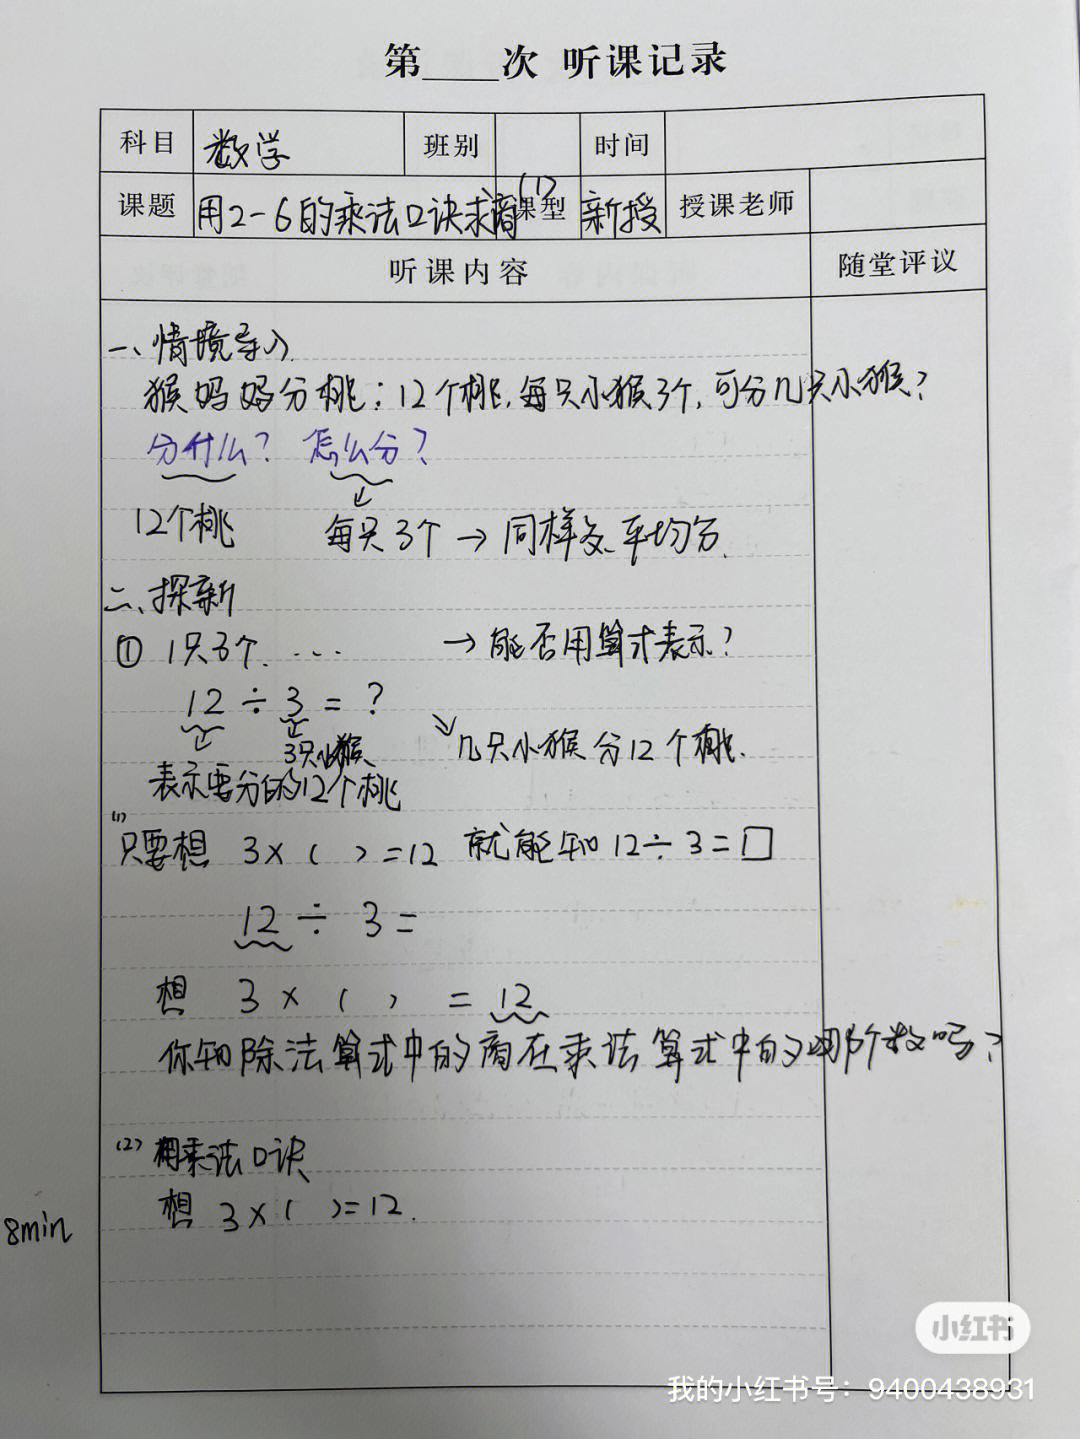 第____次 听课记录
科目 数学 班别 时间
课题 用2-6的乘法口诀求商(1) 课型 新授 授课老师
听课内容 随堂评议
一、情境导入
猴妈妈分桃:12个桃,每只小猴3个,可分几只小猴?
分什么? 怎么分?
12个桃 每只3个→同样多 平均分
二、探新
① 1只3个. ... →能否用算式表示?
12÷3=?
3只小猴 几只小猴分12个桃.
表示要分的12个桃
(1)
只要想 3×( )=12 就能知12÷3=□
12÷ 3=
想 3×( ) =12
你知除法算式中的商在乘法算式中的哪个数吗?
(2) 用乘法口诀
想 3×( )=12.
8min
小红书
我的小红书号:9400438931